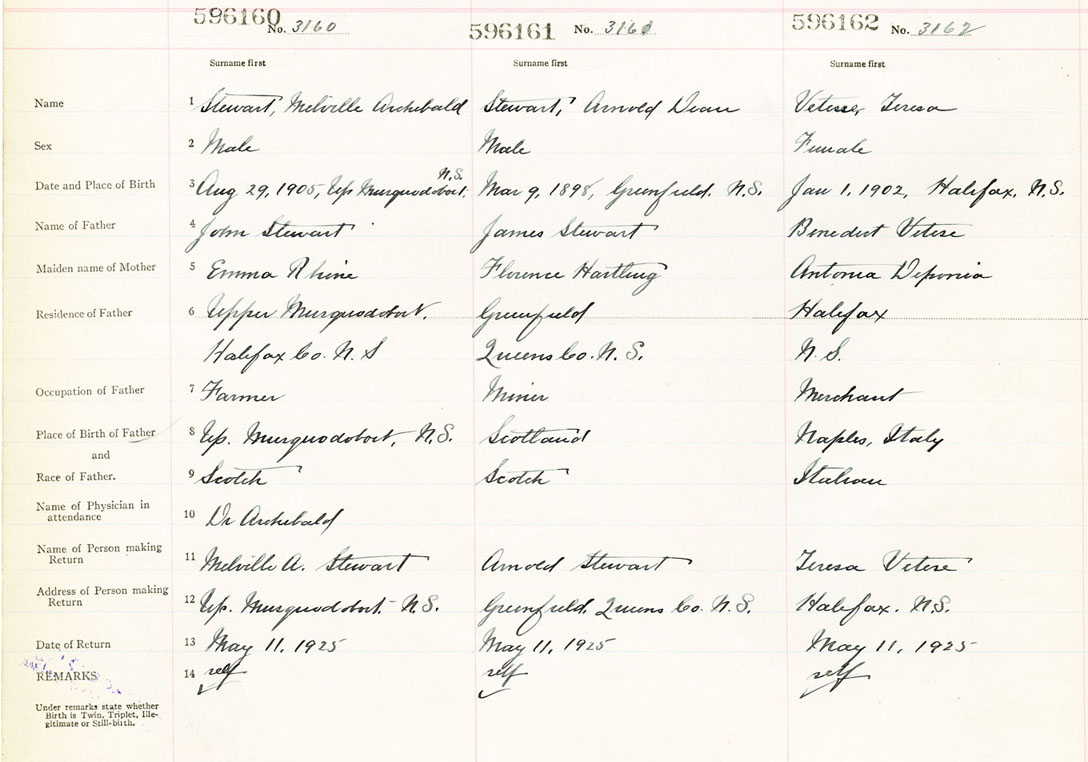 596160 No. 3160
596161 No. 3161
596162 No. 3162
Surname first Surname first Surname first
Name 1 Stewart, Melville Archibald Stewart, Arnold Dean Vetese, Teresa
Sex 2 Male Male Female
N.S.
Date and Place of Birth 3 Aug 29, 1905, Up Musquodoboit. Mar 9, 1898, Greenfield. N.S. Jan 1, 1902, Halifax, N.S.
Name of Father 4 John Stewart James Stewart Benedict Vetese
Maiden name of Mother 5 Emma Rhine Florence Hartling Antonia Deponia
Residence of Father 6 Upper Musquodoboit. Greenfield Halifax
Halifax Co. N.S Queens Co. N.S. N.S.
Occupation of Father 7 Farmer Miner Merchant
Place of Birth of Father 8 Up. Musquodoboit, N.S. Scotland Naples, Italy
and
Race of Father. 9 Scotch Scotch Italian
Name of Physician in
attendance 10 Dr Archibald
Name of Person making
Return 11 Melville A. Stewart Arnold Stewart Teresa Vetese
Address of Person making
Return 12 Up. Musquodoboit - N.S. Greenfield, Queens Co. N.S. Halifax. N.S.
Date of Return 13 May 11, 1925 May 11, 1925 May 11, 1925
REMARKS 14 self self self
Under remarks state whether
Birth is Twin, Triplet, Ille-
gitimate or Still-birth.